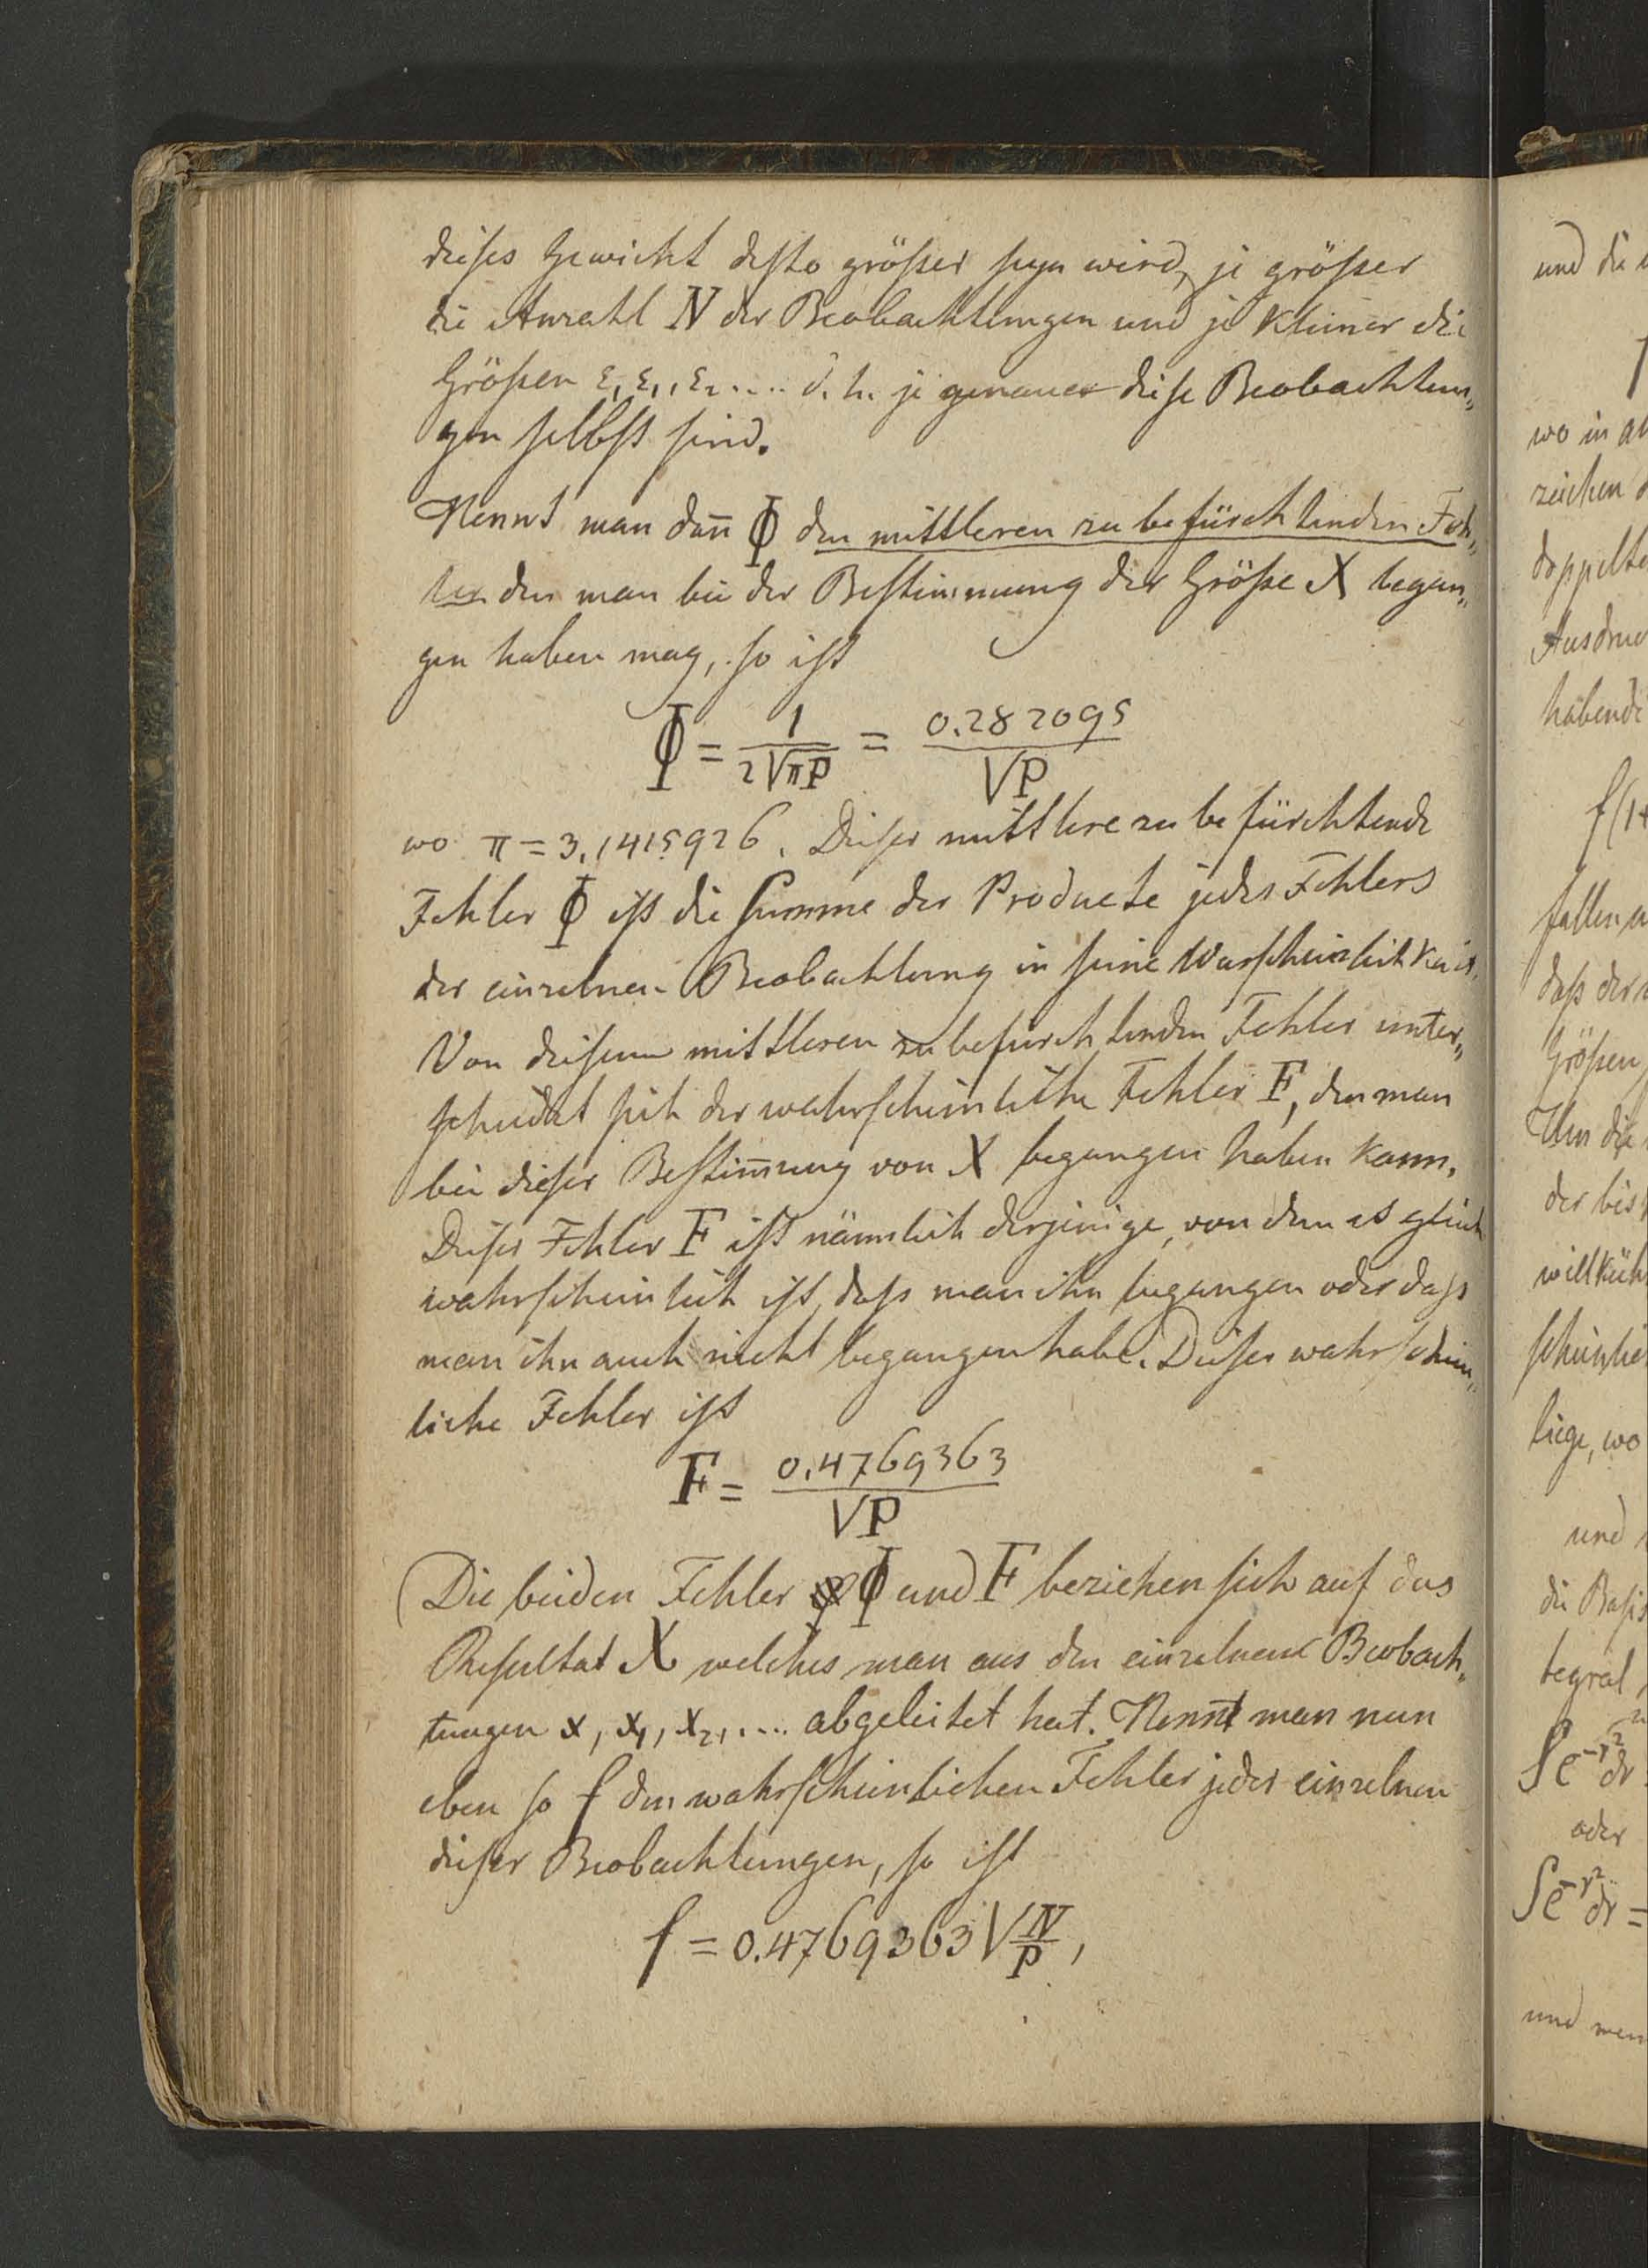 dieses Gewicht desto größer seyn wird, je größer
die Anzahl N der Beobachtungen und je kleiner die
Größen ε, ε₁, ε₂.... d. h. je genauer diese Beobachtun„
gen selbst sind.
Nennt man dañ Φ den mittleren zu befürchtenden Feh„
ler den man bei der Bestimmung der Größe X began„
gen haben mag, so ist
Φ = 1/(2√πP) = 0.282095/√P
wo π = 3.1415926. Dieser mittlere zu befürchtende
Fehler Φ ist die Summe der Producte jedes Fehlers
der einzelnen Beobachtung in seine Warscheinlichkeit.
Von diesem mittleren zu befürchtenden Fehler unter„
scheidet sich der wahrscheinliche Fehler F, den man
bei dieser Bestim̄ung von X begangen haben kann.
Dieser Fehler F ist nämlich derjenige, von dem es gleich
wahrscheinlich ist, daß man ihn begangen oder daß
man ihn auch nicht begangen habe. Dieser wahrschein„
liche Fehler ist
F = 0.4769363/√P
Die beiden Fehler Φ und F beziehen sich auf das
Resultat X welches man aus den einzelnen Beobach„
tungen x, x₁, x₂, .... abgeleitet hat. Nennt man nun
eben so f den wahrscheinlichen Fehler jeder einzelnen
dieser Beobachtungen, so ist
f = 0.4769363 √N/P,
und die
wo in
zeichen
doppelte
Ausdruc
habende
f(1+
fallen
daß der
Größen
Um die
der bis
willküh
scheinlic
liege, wo
und
die Basis
tegral
∫e^-r² dr
oder
∫e^-r² dr =
und wen